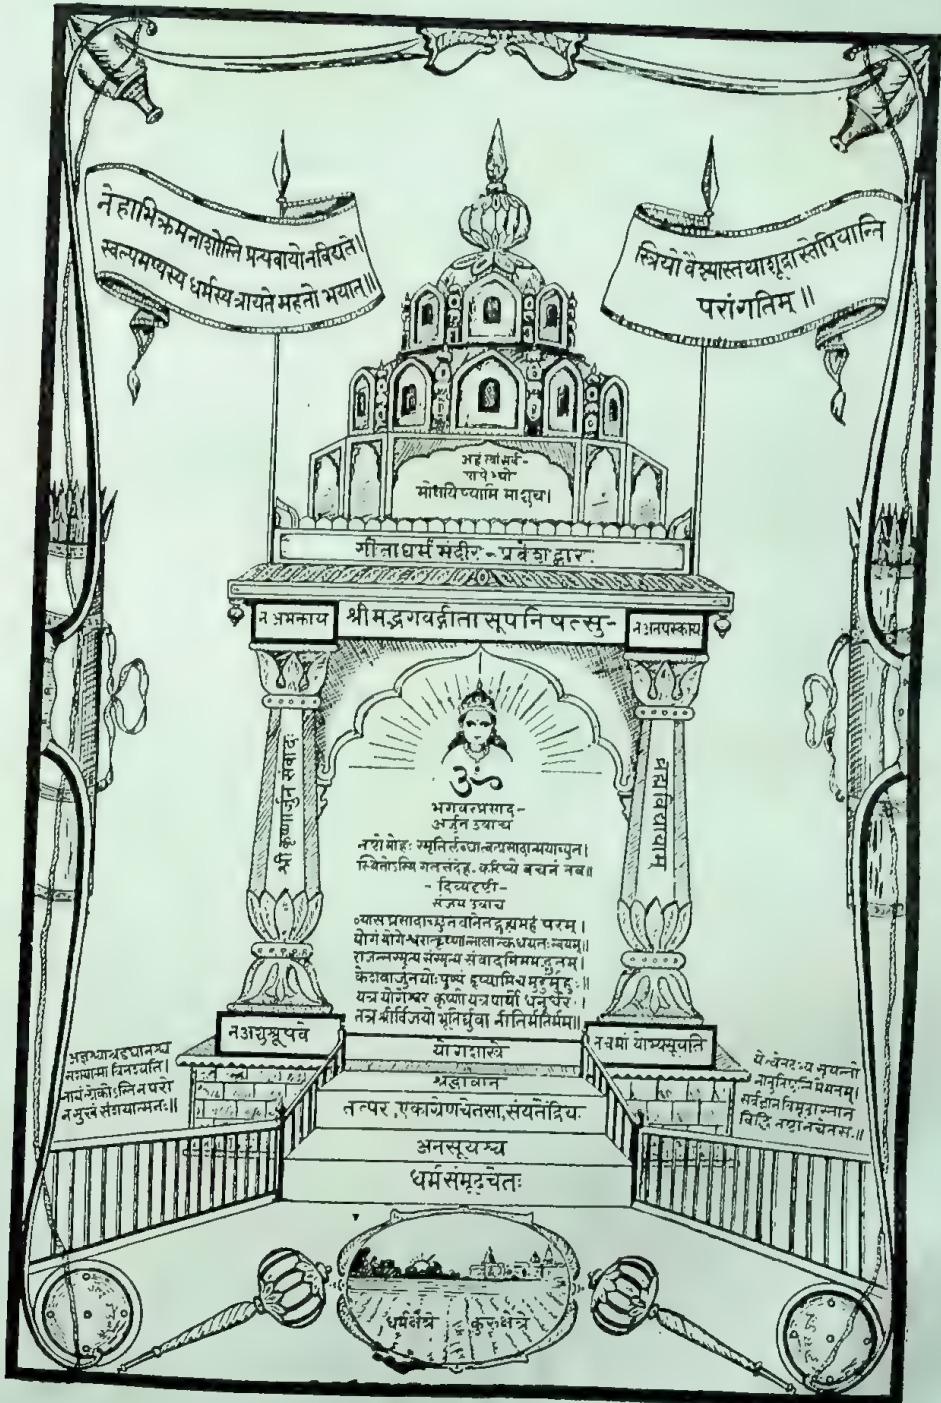 नेहाभिक्रमनाशोस्ति प्रत्यवायोनविद्यते।
स्वल्पमप्यस्य धर्मस्य त्रायते महतो भयात्॥
स्त्रियो वैश्यास्तथाशूद्रास्तेपियान्ति
परांगतिम्॥
अहं त्वां सर्व-
पापेभ्यो-
मोक्षयिष्यामि माशुच।
गीताधर्म मंदीर - प्रवेशद्वार
न अभक्ताय
श्रीमद्भगवद्गीतासूपनिषत्सु-
नअतपस्काय
श्री कृष्णार्जुन संवादः
ब्रह्मविद्यायाम्
ॐ
भगवत्प्रसाद-
अर्जुन उवाच
नष्टो मोहः स्मृतिर्लब्धात्वत्प्रसादान्मयाच्युत।
स्थितोऽस्मि गतसंदेह करिष्ये वचनं तव॥
- दिव्यदृष्टी-
संजय उवाच
व्यास प्रसादाच्छ्रुतवानेतद्गुह्यमहं परम्।
योगं योगेश्वरात्कृष्णात्साक्षात्कथयतःस्वयम्॥
राजन्संस्मृत्य संस्मृत्य संवादमिममद्भुतम्।
केशवार्जुनयोः पुण्यं हृष्यामिच मुहुर्मुहुः॥
यत्र योगेश्वर कृष्णो यत्र पार्थो धनुर्धरः।
तत्र श्रीर्विजयो भूतिर्ध्रुवा नीतिर्मतिर्मम॥
नअशुश्रूषवे
नचमां योभ्यसूयति
योगशास्त्रे
श्रद्धावान
तत्पर, एकाग्रेणचेतसा, संयतेंद्रिय
अनसूयश्च
धर्मसंमूढचेतः
अज्ञश्चाश्रद्दधानश्च
संशयात्मा विनश्यति।
नायंलोकोऽस्तिनपरो
नसुखं संशयात्मनः॥
येत्वेतदभ्यसूयन्तो
नानुतिष्ठंतिमेमतम्।
सर्वज्ञानविमूढास्तान
विद्धि नष्टानचेतसः॥
धर्मक्षेत्रे कुरुक्षेत्रे